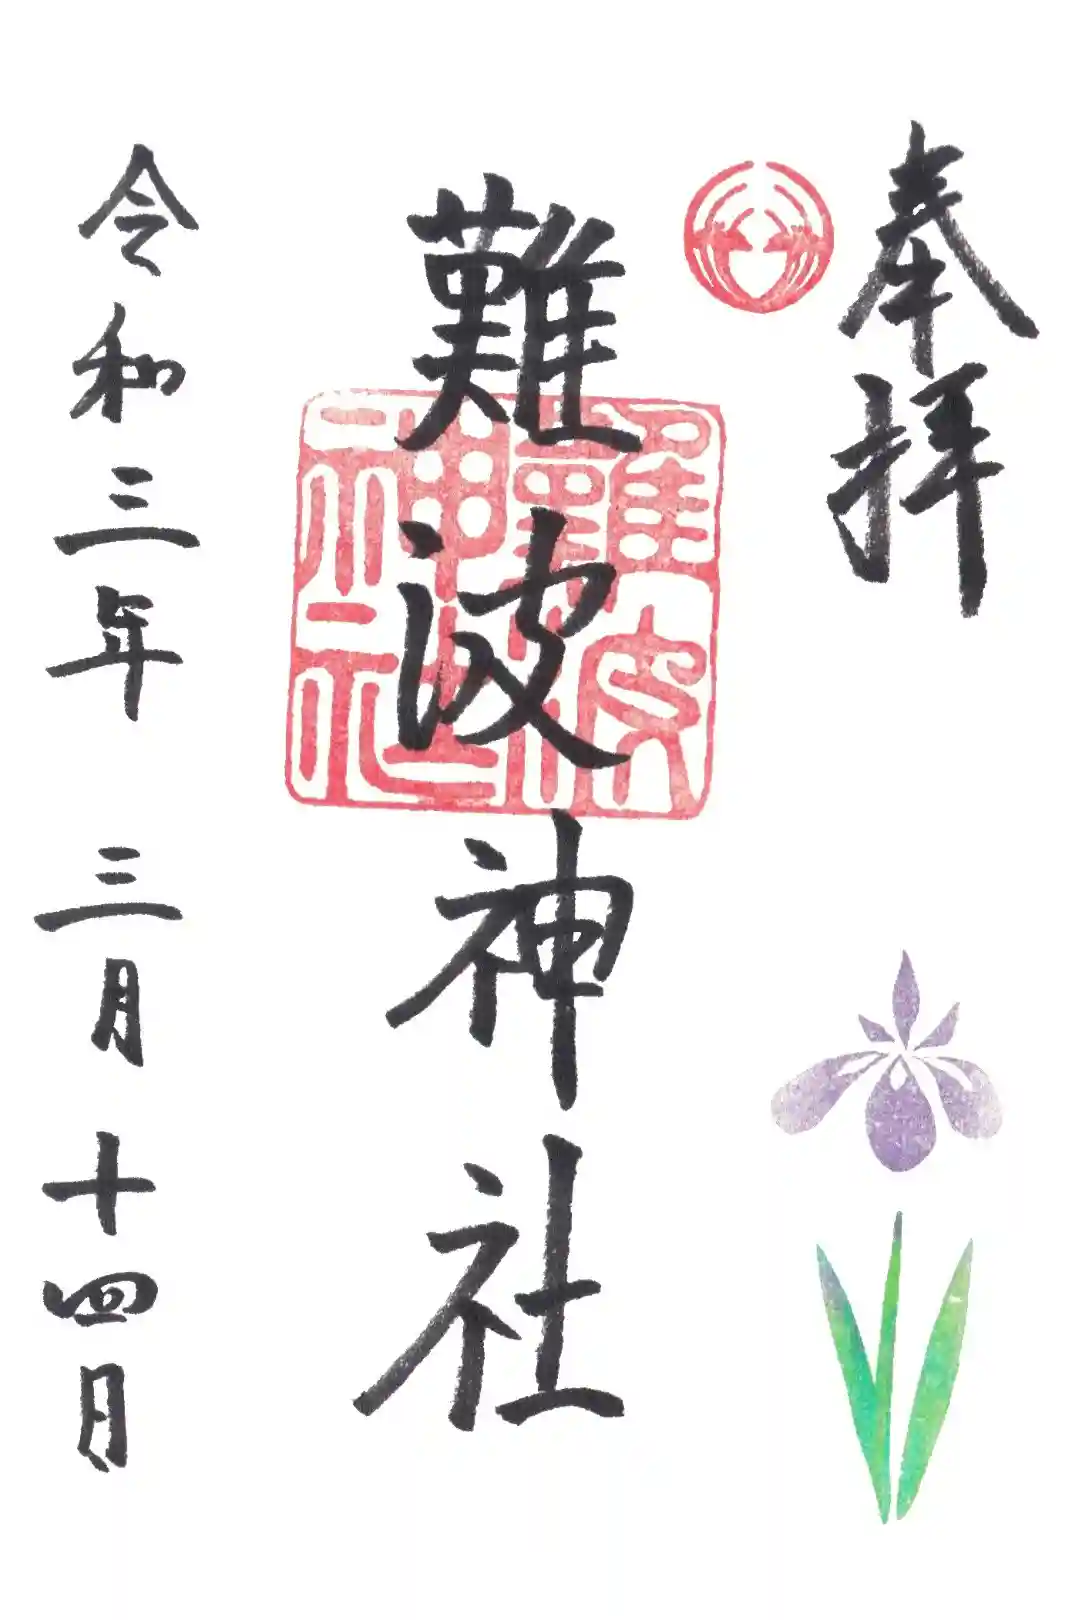 奉拝
難波神社
難波神社
令和三年 三月 十四日